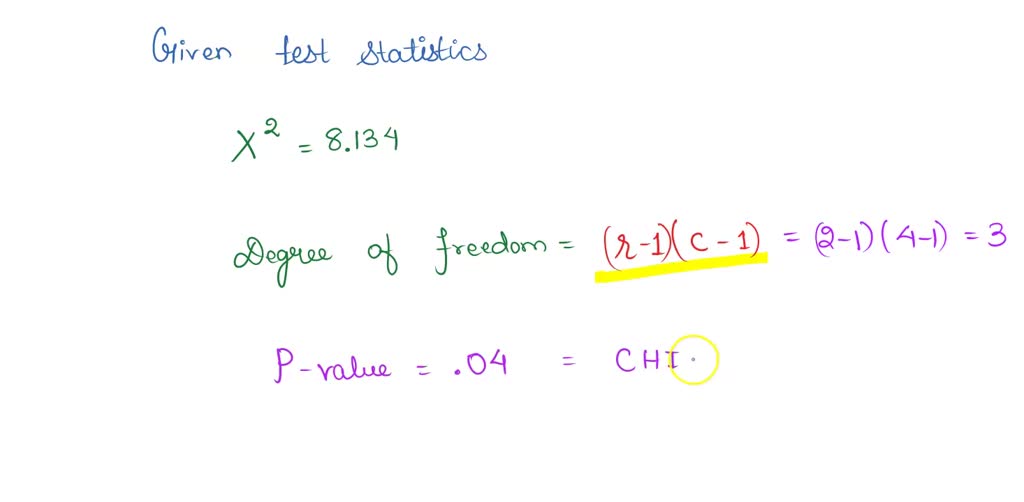 Given test statistics
X² = 8.134
Degree of freedom = (r-1)(c-1) = (2-1)(4-1) = 3
P-value = .04 = CHI.